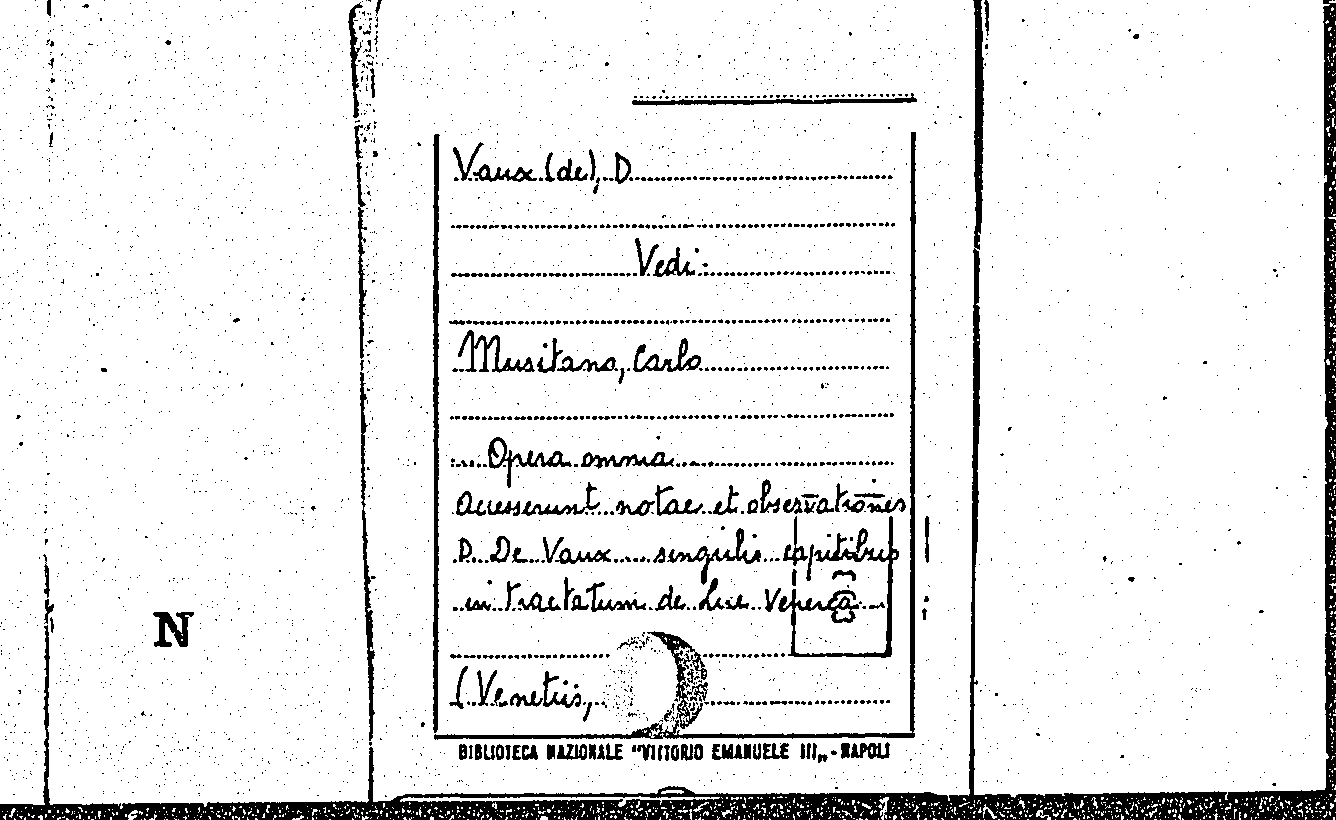 Vaux (de), D
Vedi:
Musitano, Carlo
... Opera omnia...
accesserunt notae et observationes
D. De Vaux ... singulis capitibus
in tractatum de Lue Venerea...
(Venetiis,
N
BIBLIOTECA NAZIONALE "VITTORIO EMANUELE III„ - NAPOLI